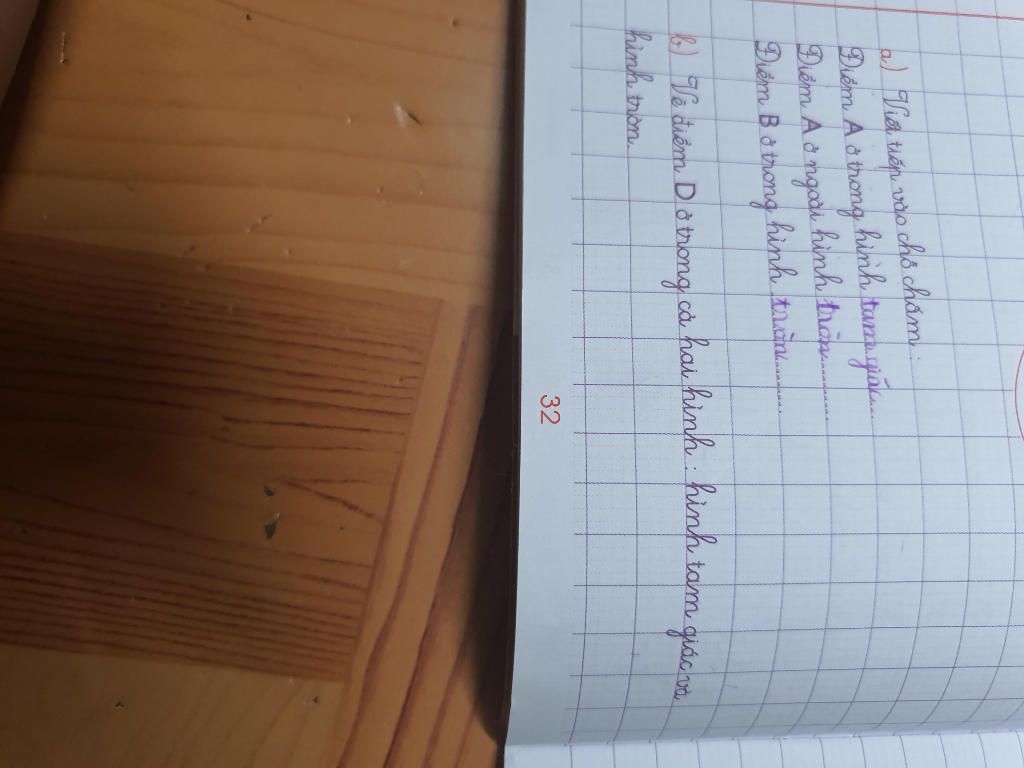 a) Viết tiếp vào chỗ chấm :
Điểm A ở trong hình tam giác....
Điểm A ở ngoài hình tròn............
Điểm B ở trong hình tròn...........
b) Vẽ điểm D ở trong cả hai hình : hình tam giác và
hình tròn.
32